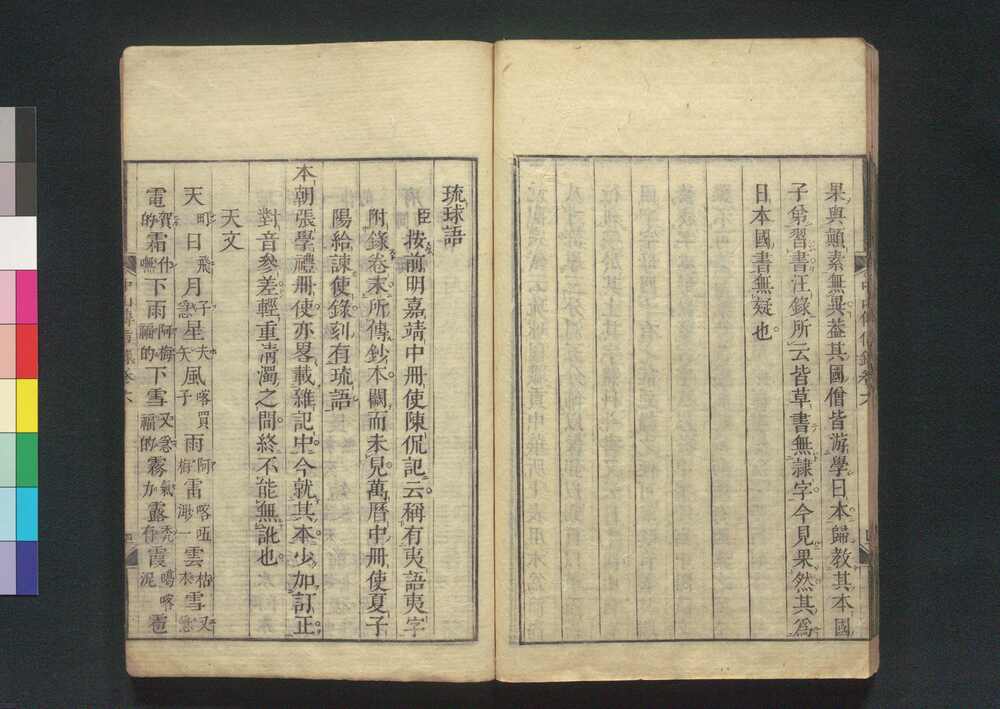 果與顛素無異蓋其國僧皆游學日本歸教其本國
子弟習書汪錄所云皆草書無隷字今見果然其爲
日本國書無疑也
琉球語
臣按前明嘉靖中册使陳侃記云稱有夷語夷字
附錄卷末所傳鈔本闕而未見萬曆中册使夏子
陽給諫使錄刻有琉語
本朝張學禮册使亦畧載雜記中今就其本少加訂正
對音參差輕重淸濁之間終不能無訛也
天文
天町日飛月子急星夫矢風喀買子雨阿梅雷喀渺一雲枯木雪又急
電賀的霜什嘸下雨阿梅福的下雪又急福的霧氣力露禿有霞噶喀泥雹